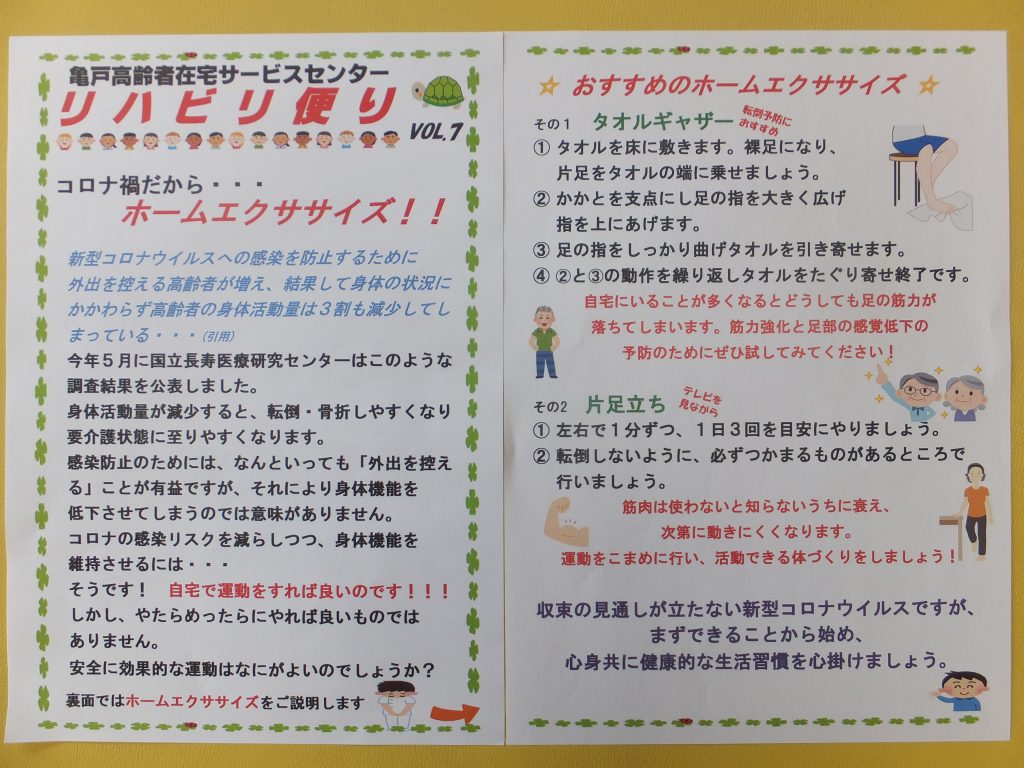 亀戸高齢者在宅サービスセンター
リハビリ便り
VOL.7
コロナ禍だから・・・
ホームエクササイズ！！
新型コロナウイルスへの感染を防止するために
外出を控える高齢者が増え、結果して身体の状況に
かかわらず高齢者の身体活動量は３割も減少してし
まっている・・・(引用)
今年５月に国立長寿医療研究センターはこのような
調査結果を公表しました。
身体活動量が減少すると、転倒・骨折しやすくなり
要介護状態に至りやすくなります。
感染防止のためには、なんといっても「外出を控え
る」ことが有益ですが、それにより身体機能を
低下させてしまうのでは意味がありません。
コロナの感染リスクを減らしつつ、身体機能を
維持させるには・・・
そうです！　自宅で運動をすれば良いのです！！！
しかし、やたらめったらにやれば良いものでは
ありません。
安全に効果的な運動はなにがよいのでしょうか？
裏面ではホームエクササイズをご説明します
☆ おすすめのホームエクササイズ ☆
その１　タオルギャザー
転倒予防に
おすすめ
① タオルを床に敷きます。裸足になり、
片足をタオルの端に乗せましょう。
② かかとを支点にし足の指を大きく広げ
指を上にあげます。
③ 足の指をしっかり曲げタオルを引き寄せます。
④ ②と③の動作を繰り返しタオルをたぐり寄せ終了です。
自宅にいることが多くなるとどうしても足の筋力が
落ちてしまいます。筋力強化と足部の感覚低下の
予防のためにぜひ試してみてください！
その2　片足立ち
テレビを
見ながら
① 左右で１分ずつ、１日３回を目安にやりましょう。
② 転倒しないように、必ずつかまるものがあるところで
行いましょう。
筋肉は使わないと知らないうちに衰え、
次第に動きにくくなります。
運動をこまめに行い、活動できる体づくりをしましょう！
収束の見通しが立たない新型コロナウイルスですが、
まずできることから始め、
心身共に健康的な生活習慣を心掛けましょう。